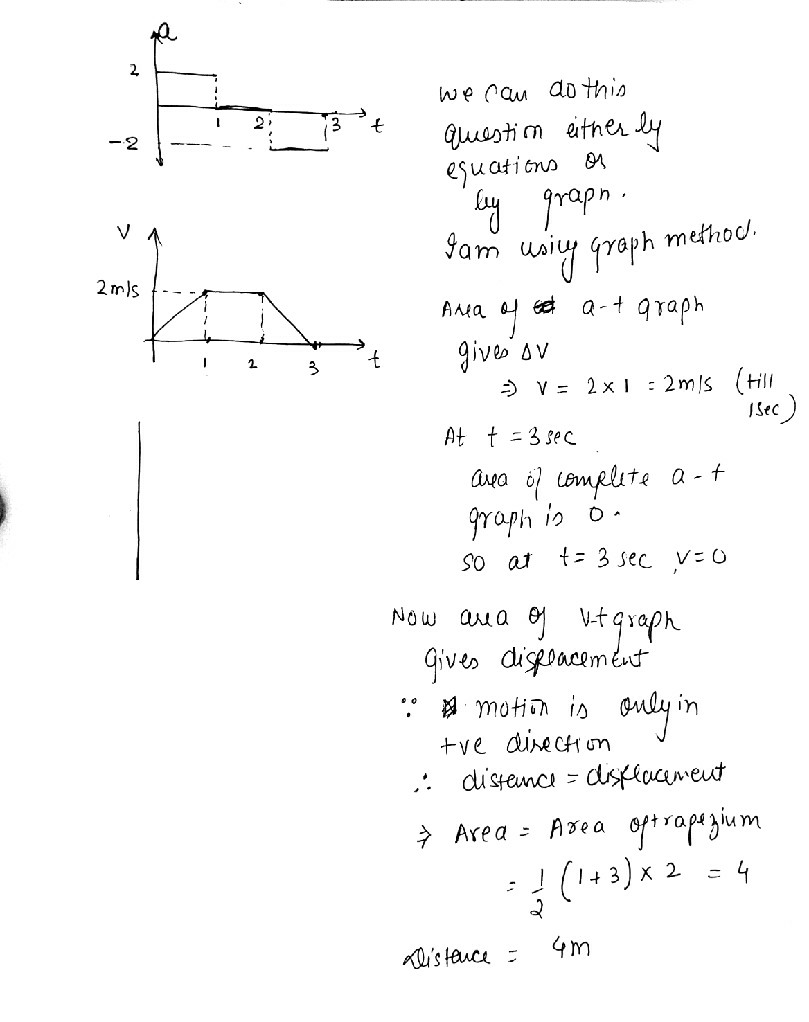 a
2
1
2
3
t
-2
v
2m/s
1
2
3
t
we can do this
question either by
equations or
by graph.
I am using graph method.
Area of a-t graph
gives Δv
⇒ v = 2 × 1 = 2m/s (till
1sec)
At t = 3 sec
area of complete a-t
graph is 0.
so at t = 3 sec, v=0
Now area of v-t graph
gives displacement
∵ motion is only in
+ve direction
∴ distance = displacement
⇒ Area = Area of trapezium
= 1/2 (1+3) × 2 = 4
Distance = 4m